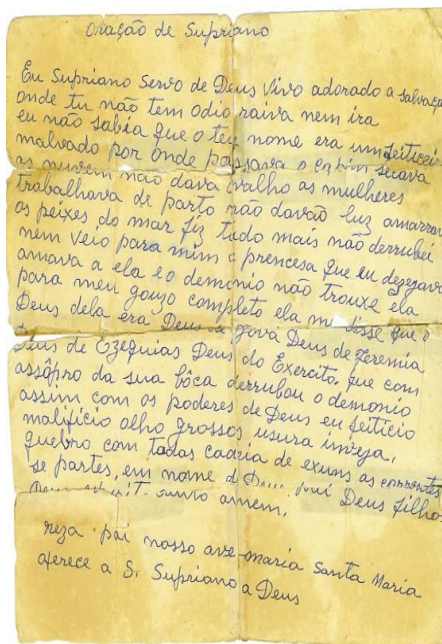 Oração de Supriano
Eu Supriano servo de Deus vivo adorado a salvaça
onde tu não tem odio raiva nem ira
eu não sabia que o teu nome era um feiticeir
malvado por onde passava o capin secava
as nuvem não dava orvalho as mulheres
trabalhava de parto não davão luz amarrav
os peixes do mar fiz tudo mais não derrubei
nem veio para mim a prencesa que eu dezejava
amava a ela e o demonio não trouxe ela
para meu gouzo completo ela me disse que o
Deus dela era Deus de gová Deus de Jeremia
Deus de Ezequias Deus do Exercito, que com
assôpro da sua bôca derrubou o demonio
assim com os poderes de Deus eu feitiço
malificio olho grossos usura inveja,
quebro com todas cadria de exuns as correntes
se partes, em nome d Deus pai Deus filho
Deus santo amem,
reza pai nosso ave-maria Santa Maria
oferece a S. Supriano a Deus